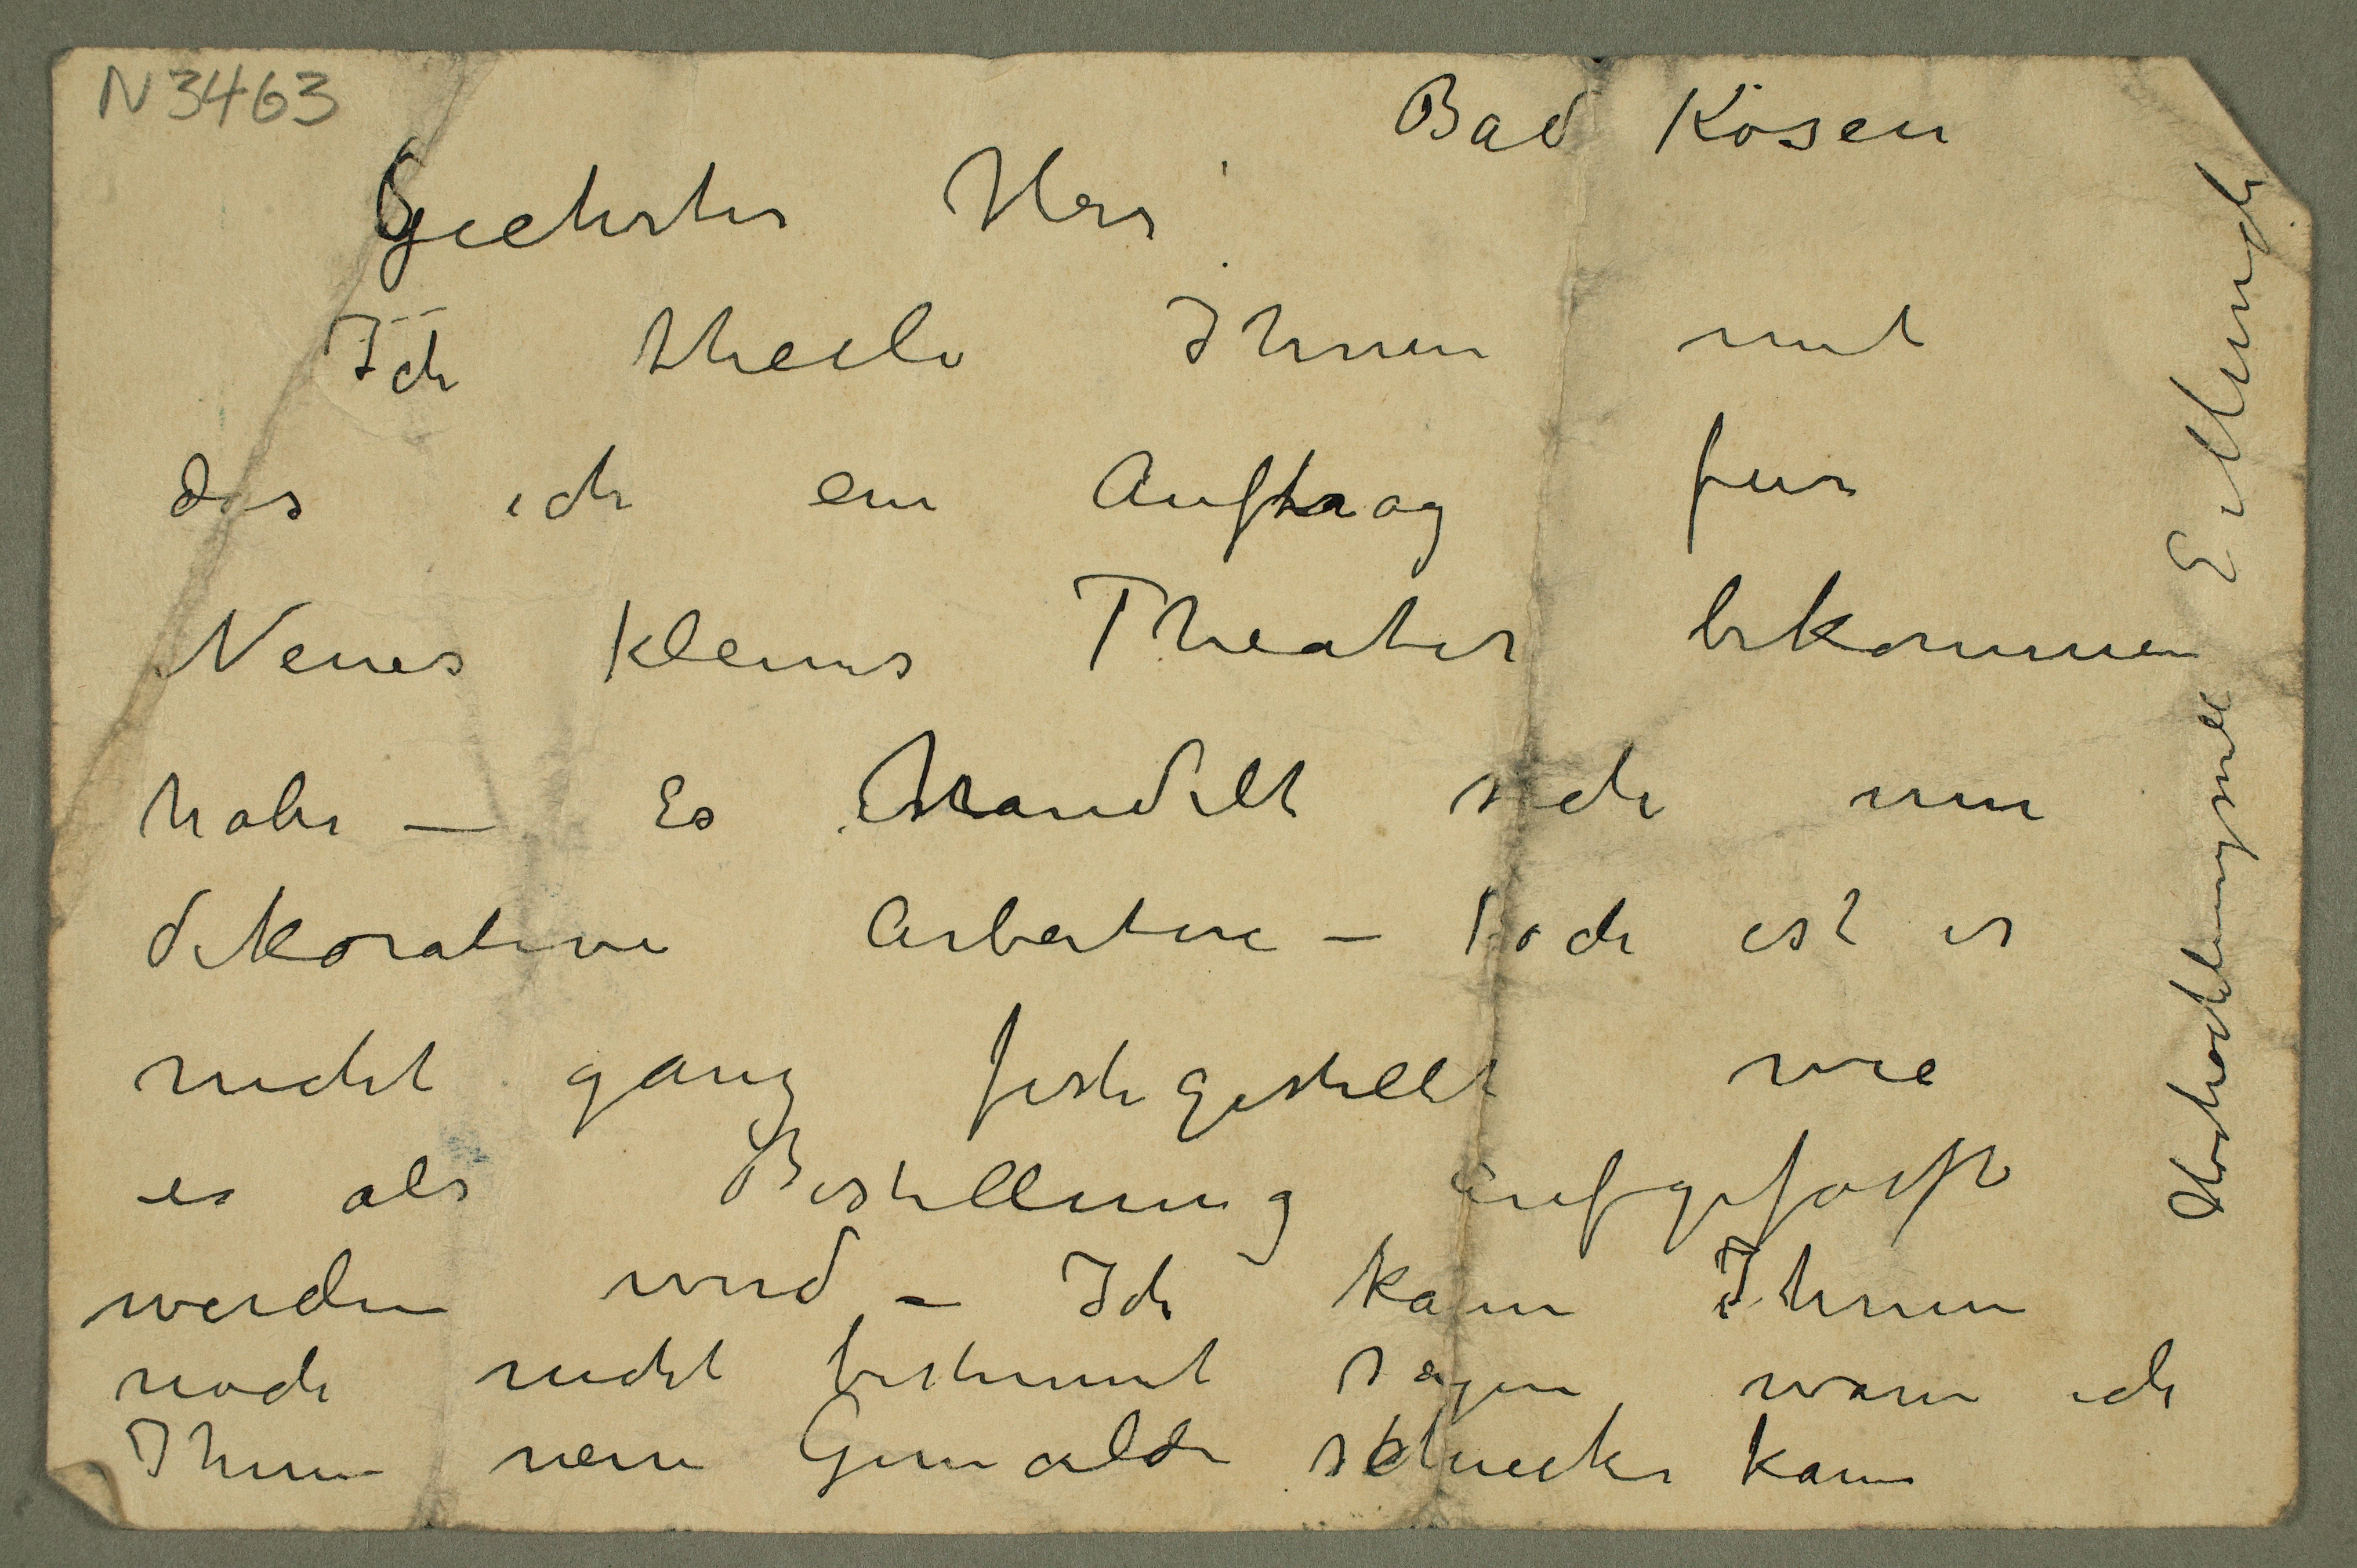 N3463
Bad Kösen
Geehrter Herr
Ich theile Ihnen mit
das ich ein Auftrag für
Neues Kleines Theater bekommen
habe — Es handelt sich um
dekorative Arbeiten — doch ist es
nicht ganz festgestellt wie
es als Bestellung aufgefasst
werden wird — Ich kann Ihnen
noch nicht bestimmt sagen wann ich
Ihnen neue Gemälde schicke kann
Hochachtungsvoll E. Munch